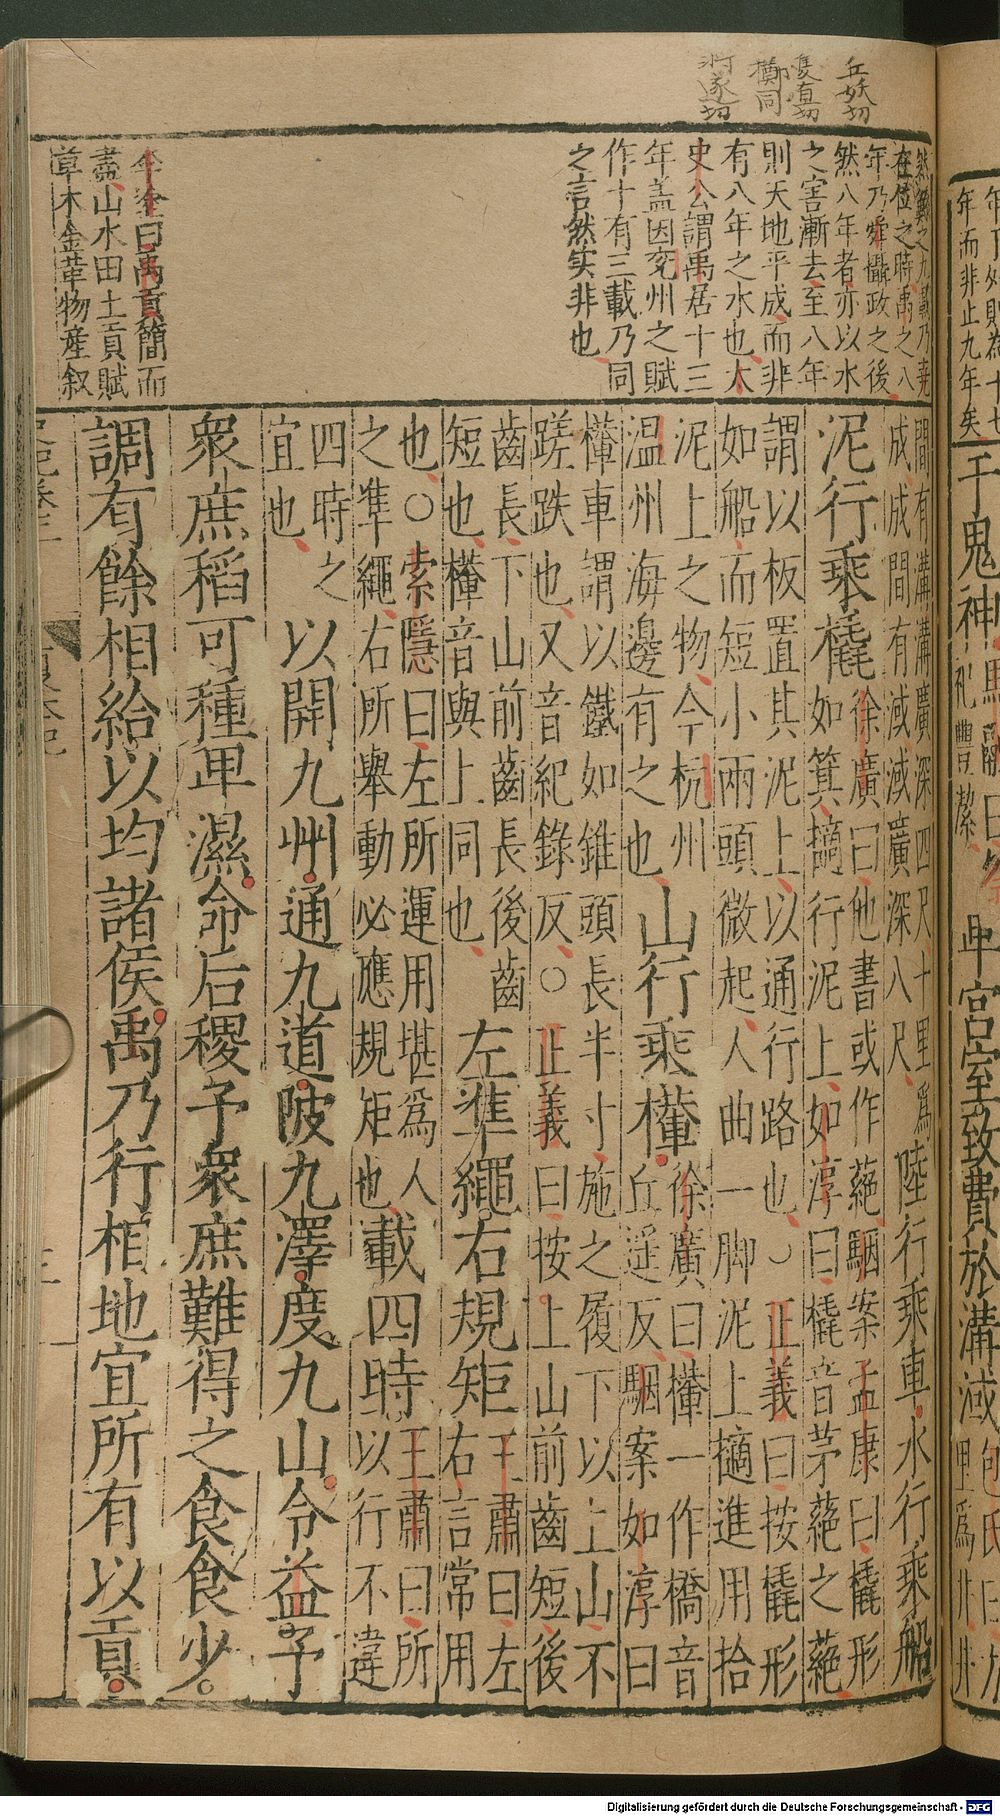 丘妖切
然鯀之九載乃堯
在位之時禹之八
年乃舜攝政之後
然八年者亦以水
之害漸去至八年
則天地平成而非
有八年之水也太
史公謂禹居十三
年蓋因兗州之賦
作十有三載乃同
之言然实非也
余全曰禹貢簡而
盡山水田土貢賦
草木金革物產叙
年而非止九年矣
于鬼神
卑宮室致費於溝淢
間有溝溝廣深四尺十里爲
成成間有淢淢廣深八尺
陸行乘車水行乘船
泥行乘橇
徐廣曰他書或作蕝駰案孟康曰橇形
如箕擿行泥上如淳曰橇音茅蕝之蕝
謂以板置其泥上以通行路也○正義曰按橇形
如船而短小兩頭微起人曲一脚泥上擿進用拾
泥上之物今杭州
温州海邊有之也
山行乘檋
徐廣曰檋一作橋音
丘遥反駰案如淳曰
檋車謂以鐵如錐頭長半寸施之履下以上山不
蹉跌也又音紀錄反○正義曰按上山前齒短後
齒長下山前齒長後齒
短也檋音與上同也
左準繩右規矩
王肅曰左
右言常用
也○索隱曰左所運用堪爲人
之準繩右所舉動必應規矩也
載四時
王肅曰所
以行不違
四時之
宜也
以開九州通九道陂九澤度九山令益予
衆庶稻可種卑濕命后稷予衆庶難得之食食少
調有餘相給以均諸侯禹乃行相地宜所有以貢
Digitalisierung gefördert durch die Deutsche Forschungsgemeinschaft - DFG